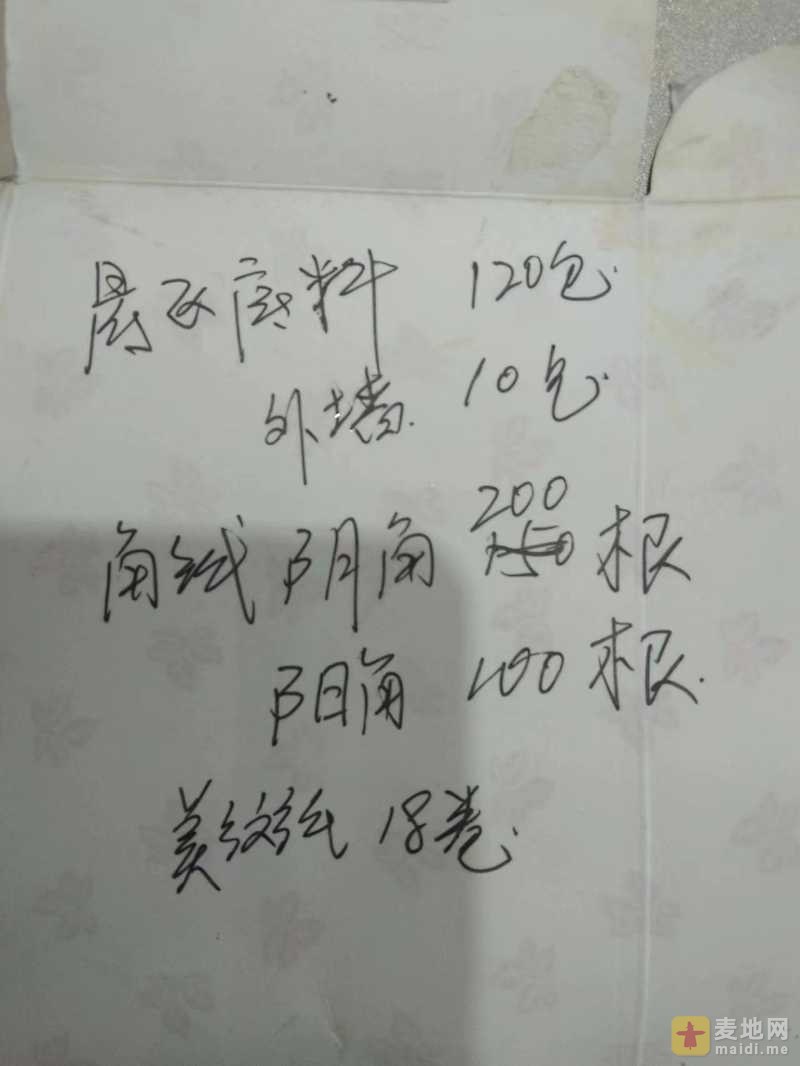 底料 120包
外墙 10包
200
角线 阴角 150 根
阳角 100 根
美纹纸 18卷
麦地网
maidi.me